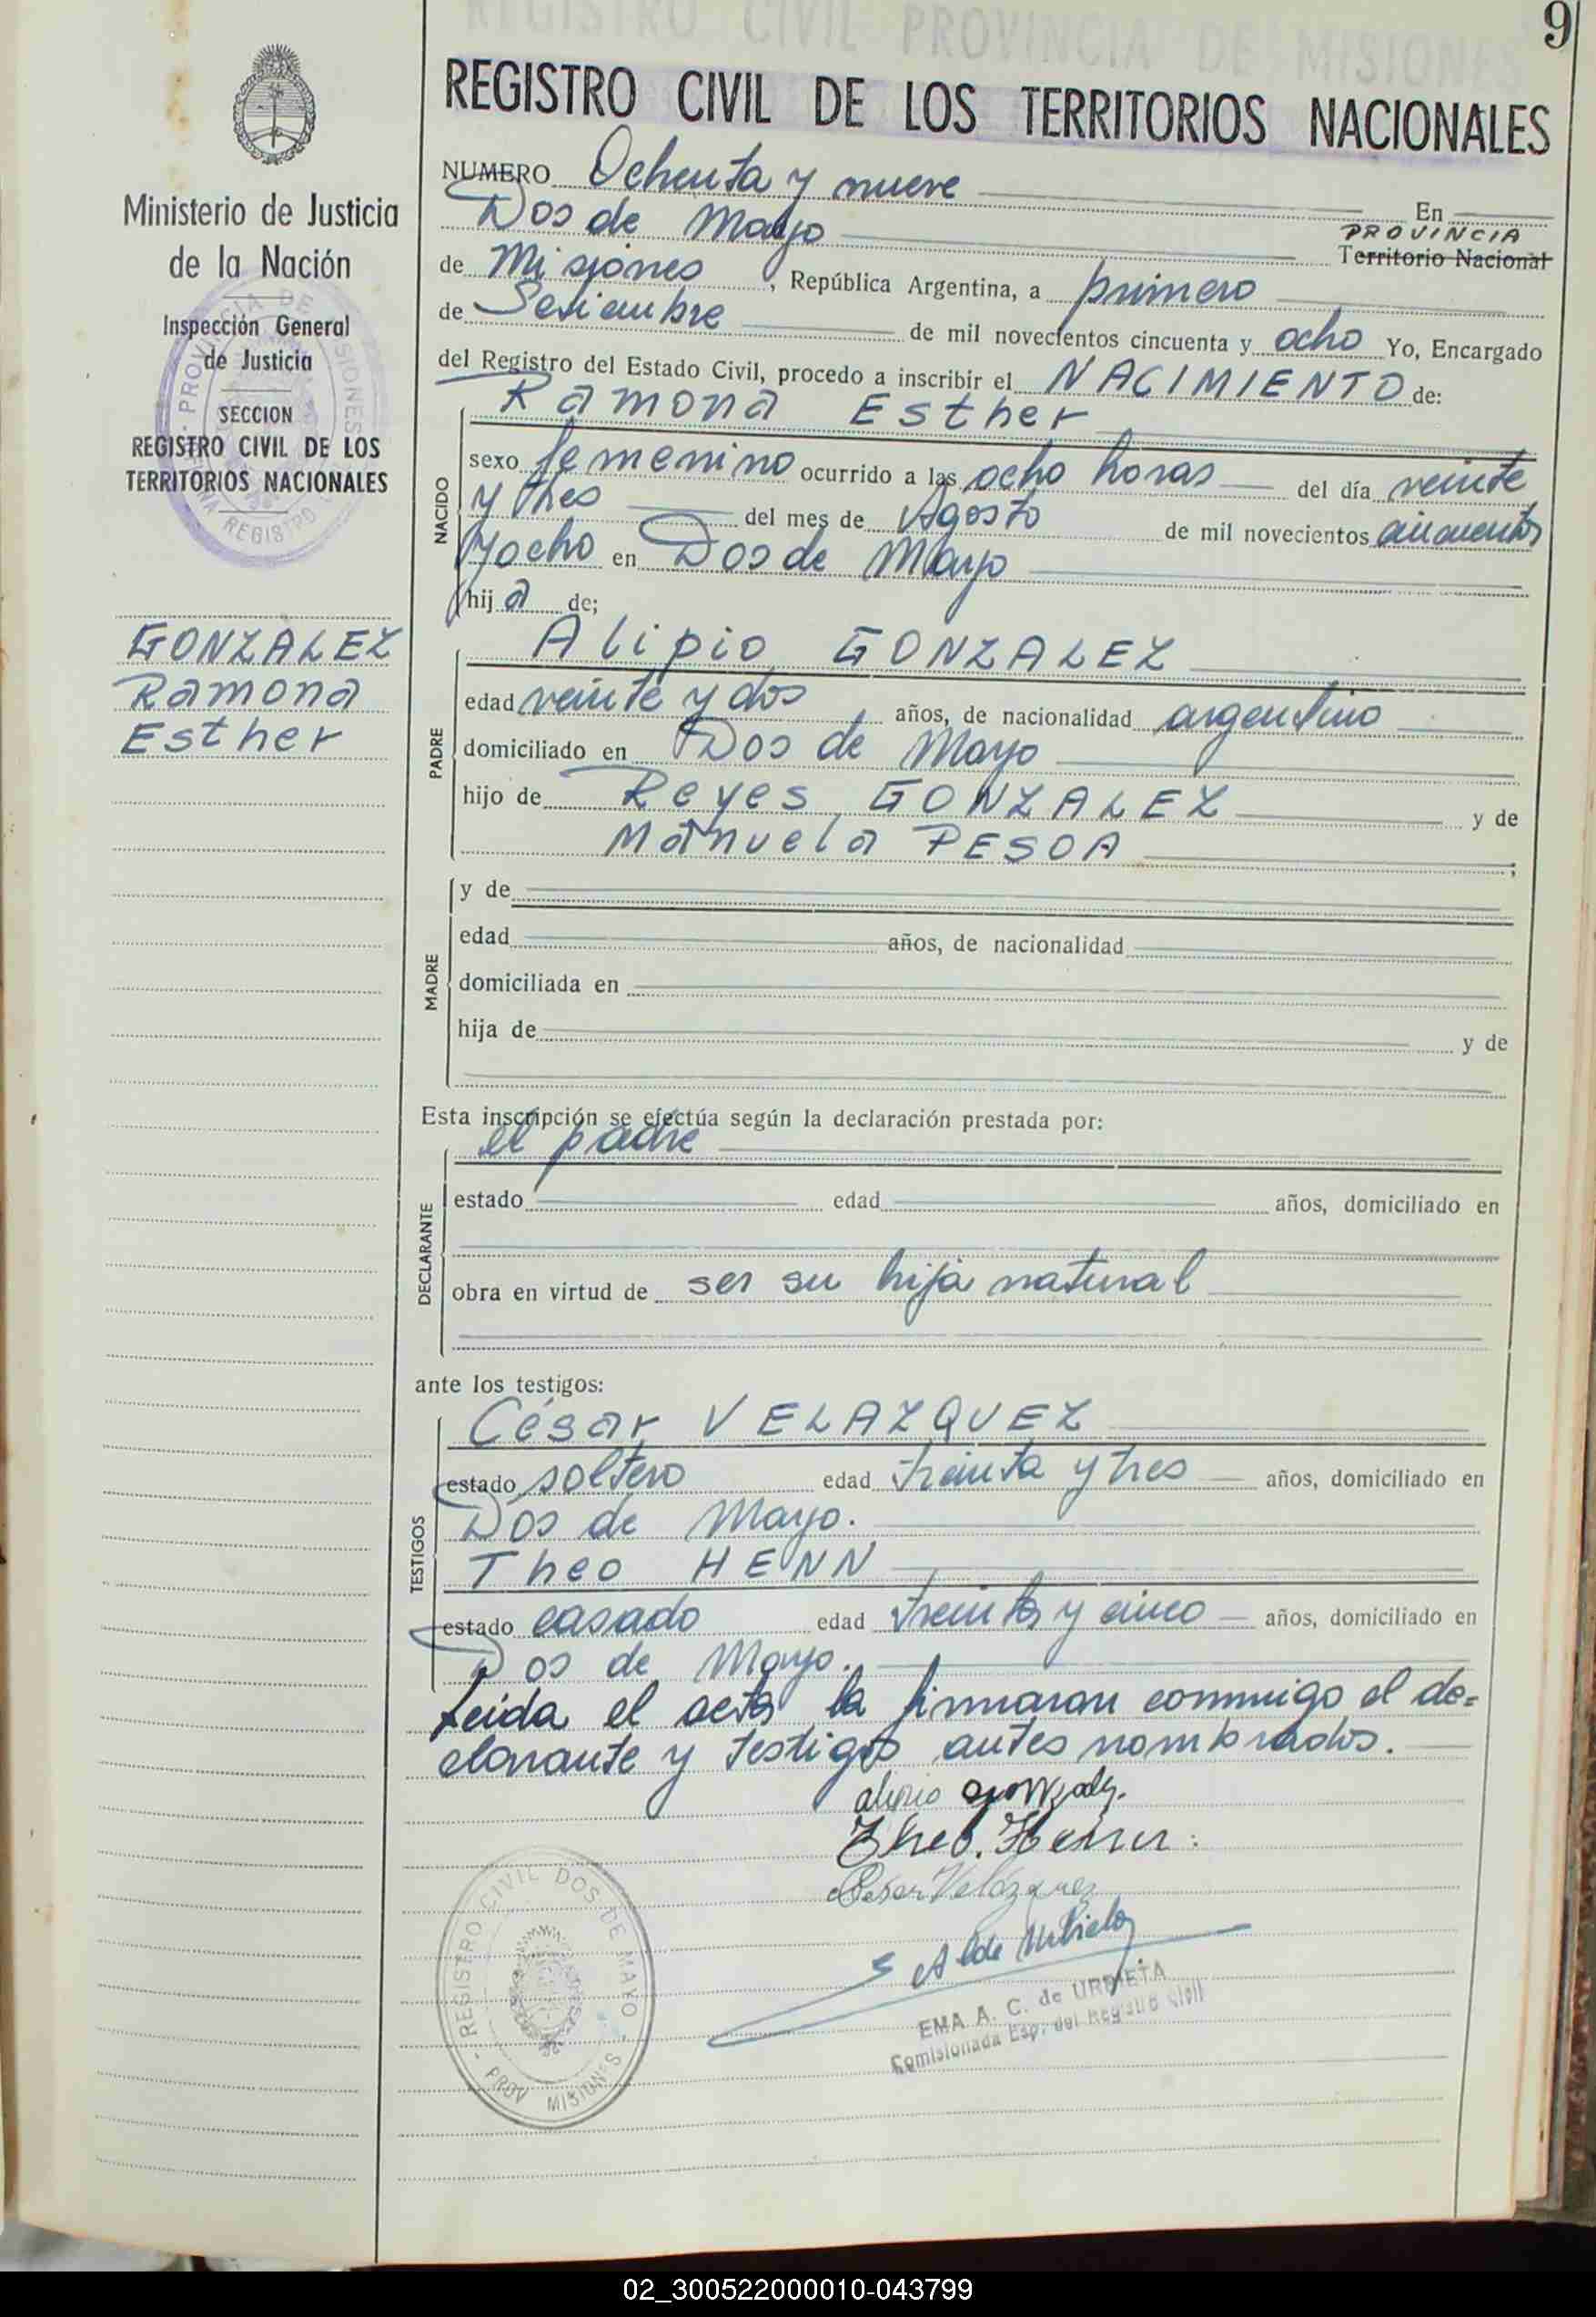 REGISTRO CIVIL PROVINCIA DE MISIONES
9
REGISTRO CIVIL DE LOS TERRITORIOS NACIONALES
Ministerio de Justicia
de la Nación
Inspección General
de Justicia
SECCION
REGISTRO CIVIL DE LOS
TERRITORIOS NACIONALES
GONZALEZ
Ramona
Esther
NUMERO Ochenta y nueve En
Dos de Mayo PROVINCIA Territorio Nacional
de Misiones, República Argentina, a primero
de Setiembre de mil novecientos cincuenta y ocho Yo, Encargado
del Registro del Estado Civil, procedo a inscribir el NACIMIENTO de:
NACIDO
Ramona Esther
sexo femenino ocurrido a las ocho horas del día veinte
y tres del mes de Agosto de mil novecientos cincuenta
y ocho en Dos de Mayo
hija de;
PADRE
Alipio GONZALEZ
edad veinte y dos años, de nacionalidad argentino
domiciliado en Dos de Mayo
hijo de Reyes GONZALEZ y de
Manuela PESOA;
MADRE
y de
edad años, de nacionalidad
domiciliada en
hija de y de
Esta inscripción se efectúa según la declaración prestada por:
DECLARANTE
el padre
estado edad años, domiciliado en
obra en virtud de ser su hija natural
ante los testigos:
TESTIGOS
César VELAZQUEZ
estado soltero edad treinta y tres años, domiciliado en
Dos de Mayo.
Theo HENN
estado casado edad treinta y cinco años, domiciliado en
Dos de Mayo.
Leida el acta la firmaron conmigo el de=
clarante y testigos antes nombrados.
alipio gonzalez.
Theo. Henn
Cesar Velázquez
A de Urdieta
EMA A. C. de URDIETA
Comisionada Esp. del Registro Civil
REGISTRO CIVIL DOS DE MAYO
PROV MISIONES
02_300522000010-043799